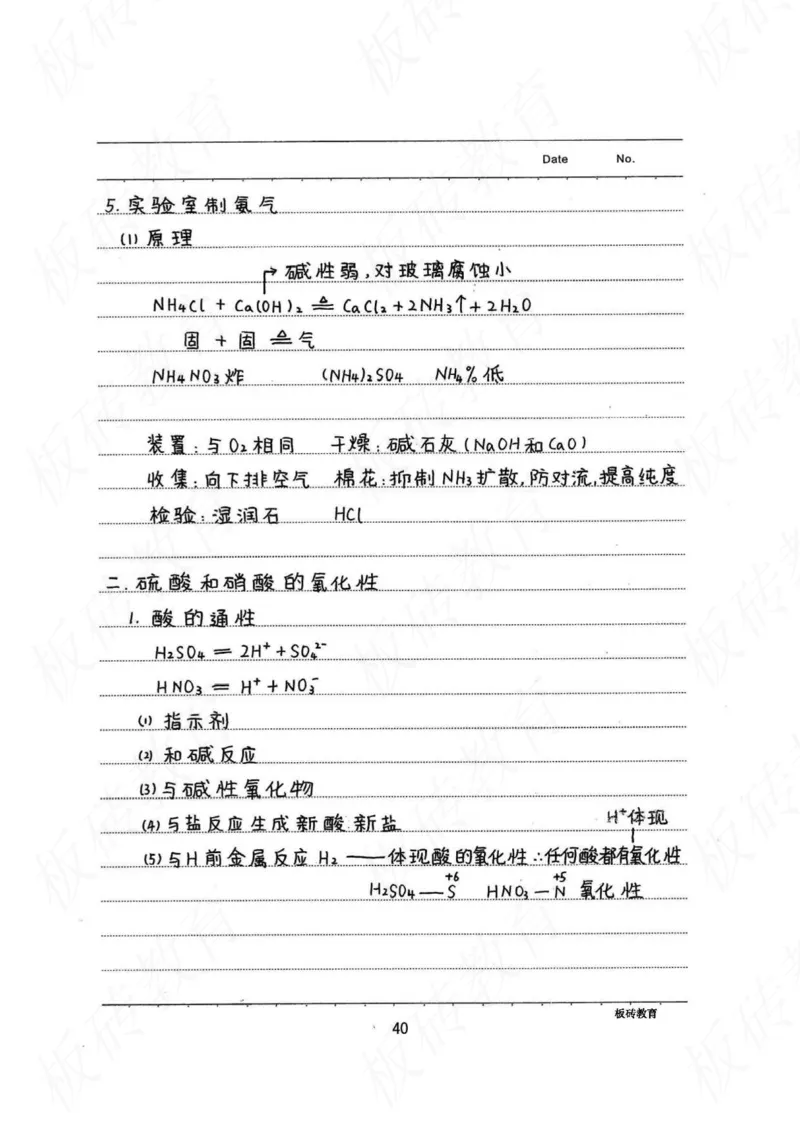 Date No.
5.实验室制氨气
(1)原理
→碱性弱,对玻璃腐蚀小
NH4Cl + Ca(OH)2 ≜ CaCl2+2NH3↑+2H2O
固 + 固 ≜ 气
NH4NO3炸 (NH4)2SO4 NH4%低
装置:与O2相同 干燥:碱石灰(NaOH和CaO)
收集:向下排空气 棉花:抑制NH3扩散,防对流,提高纯度
检验:湿润石 HCl
二.硫酸和硝酸的氧化性
1.酸的通性
H2SO4 = 2H⁺+SO4²⁻
HNO3 = H⁺+NO3⁻
(1)指示剂
(2)和碱反应
(3)与碱性氧化物
(4)与盐反应生成新酸新盐
H⁺体现
(5)与H前金属反应H2——体现酸的氧化性∴任何酸都有氧化性
+6 +5
H2SO4—S HNO3—N 氧化性
板砖教育
40
板砖教育